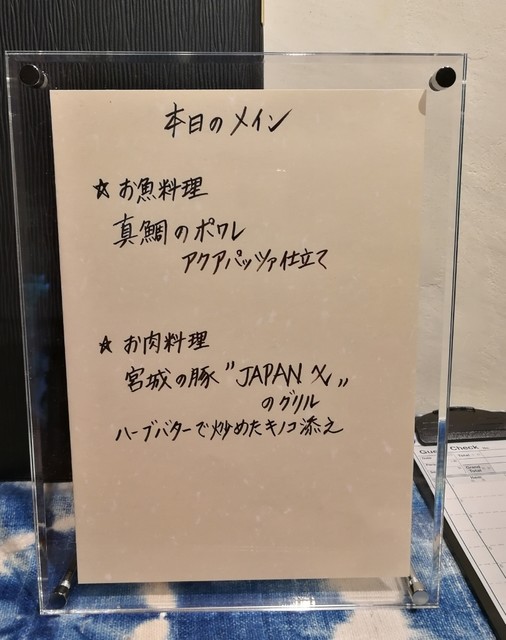 本日のメイン
☆お魚料理
真鯛のポワレ
アクアパッツァ仕立て
☆お肉料理
宮城の豚"JAPAN X"
のグリル
ハーブバターで炒めたキノコ添え
Guest Check
Date
Total
Grand Total